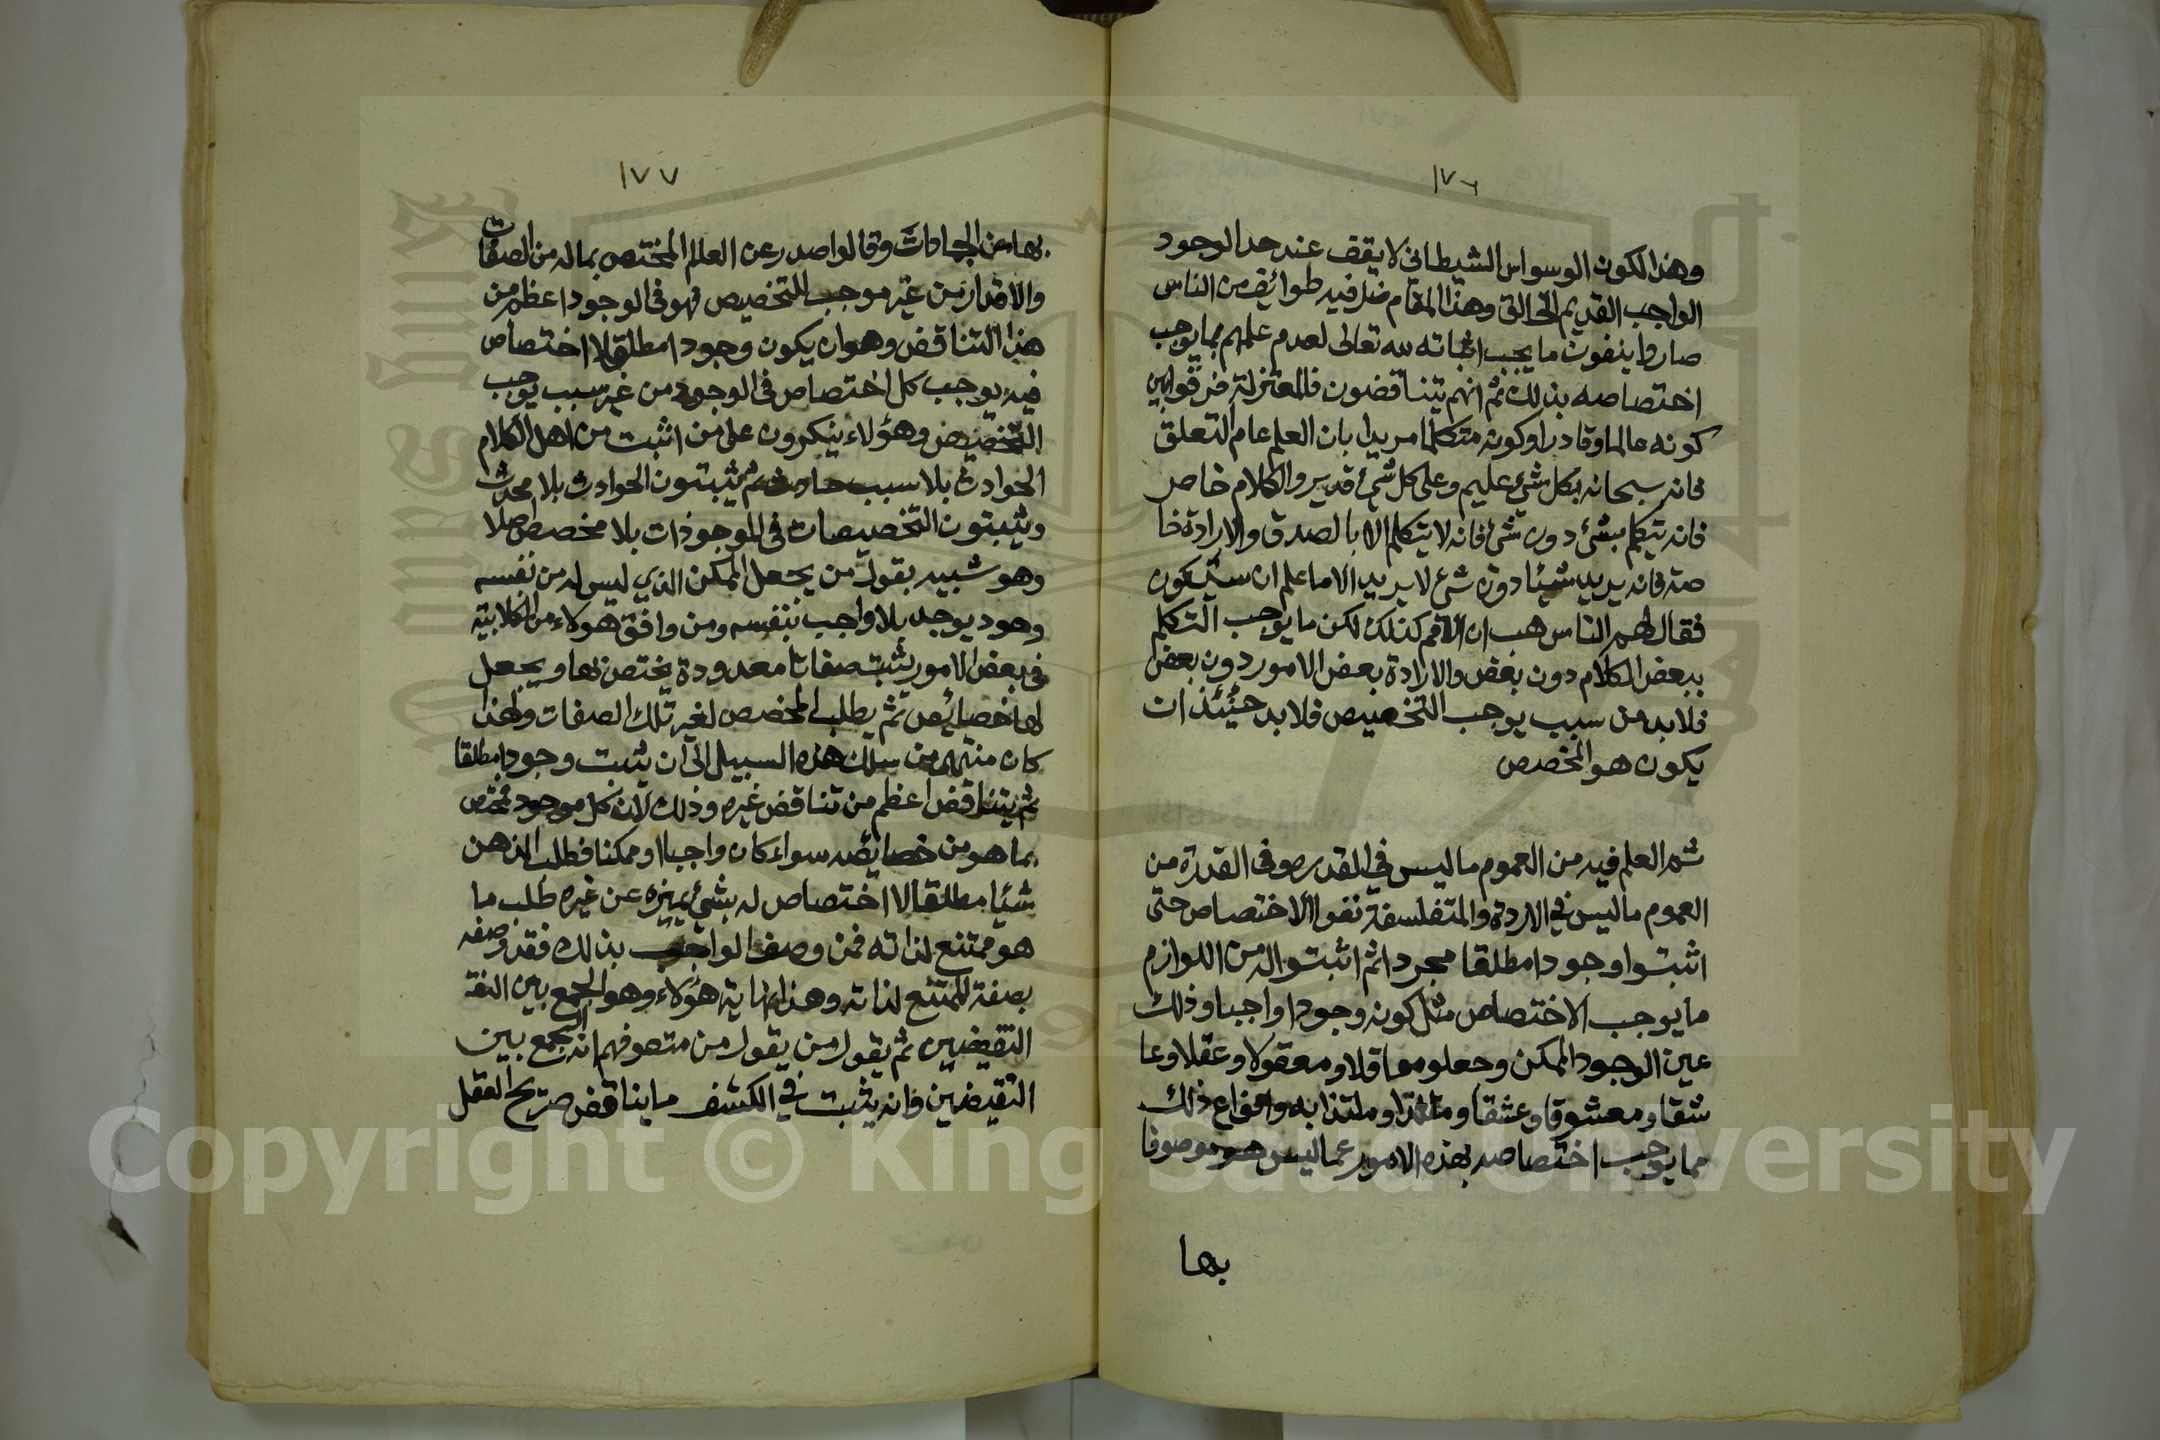 ١٧٦
وهذا لكون الوسواس الشيطاني لا يقف عند حد الوجود
الواجب القديم الى التي وهذا المقام ضل فيه طوائف من الناس
صاروا ينفون ما يجب اثباته لله تعالى لعدم علمهم بما يوجب
اختصاصه بذلك ثم انهم يتناقضون فالمعتزلة فرقوا بين
كونه عالما وقادرا وكونه متكلما مريدا بان العلم عام التعلق
فانه سبحانه بكل شيء عليم وعلى كل شيء قدير والكلام خاص
فانه يتكلم بشيء دون شيء فانه لا يتكلم الا بالصدق والارادة خا
صة فانه يريد شيئا دون شيء لا يريد الا ما علم ان سيكون
فقال لهم الناس هب ان الامر كذلك لكن ما يوجب التكلم
ببعض الكلام دون بعض والارادة بعض الامور دون بعض
فلا بد من سبب يوجب التخصيص فلا بد حينئذ ان
يكون هو المخصص
ثم العلم فيه من العموم ما ليس في المقدره وفى القدرة من
العموم ما ليس في الاردة والمتفلسفة نفوا الاختصاص حتى
اثبتوا وجودا مطلقا مجردا ثم اثبتوا له من اللوازم
ما يوجب الاختصاص مثل كونه وجودا واجبا وذلك
عين الوجود الممكن وجعلوه عاقلا ومعقولا وعقلا وعا
شقا ومعشوقا وعشقا وملتذا وملتذا به وانواع ذلك
مما يوجب اختصاصه بهذه الامور عما ليس هو موصوفا
بها
١٧٧
بها من الجمادات وقالوا صدر عن العالم المختص بماله من الصفات
والاقدار من غير موجب للتخصيص فهو في الوجود اعظم من
هذا التناقض وهو ان يكون وجودا مطلقا لا اختصاص
فيه يوجب كل اختصاص في الوجود من غير سبب يوجب
التخصيص وهؤلاء ينكرون على من اثبت من اهل الكلام
الحوادث بلا سبب حادث ثم يثبتون الحوادث بلا محدث
ويثبتون التخصيصات في الموجودات بلا مخصص اصلا
وهو شبيه بقول من يجعل الممكن الذي ليس له من نفسه
وجود يوجد بلا واجب بنفسه ومن وافق هولاء من الكلابية
في بعض الامور يثبت صفاتا معدودة يختص بها ويجعل
لها خصائص ثم يطلب المخصص لغير تلك الصفات ولهذا
كان منتهى من سلك هذه السبيل الى ان يثبت وجودا مطلقا
ثم يتناقض اعظم من تناقض غيره وذلك لان كل موجود مختص
بما هو من خصائصه سواء كان واجبا او ممكنا فطلب الذهن
شيئا مطلقا لا اختصاص له بشيء يميزه عن غيره طلب ما
هو ممتنع لذاته فمن وصف الواجب بذلك فقد وصفه
بصفة الممتنع لذاته وهذا نهاية هؤلاء وهو الجمع بين النقـ
النقيضين ثم يقول من يقول من متصوفهم انه يجمع بين
النقيضين وانه يثبت في الكشف ما يناقض صريح العقل
Copyright © King Saud University